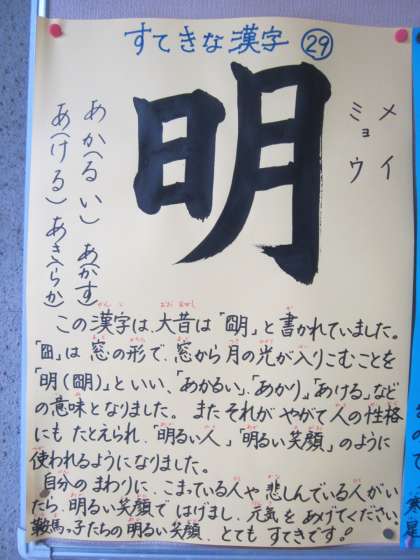 すてきな漢字 29
明
メイ
ミョウ
あか(るい) あかす
あ(ける) あき(らか)
この漢字は、大昔は「朙」と書かれていました。
「囧」は窓の形で、窓から月の光が入りこむことを
「明(朙)」といい、「あかるい」、「あかり」、「あける」など
の意味となりました。またそれがやがて人の性格
にもたとえられ、「明るい人」「明るい笑顔」のように
使われるようになりました。
自分のまわりに、こまっている人や悲しんでいる人がい
たら、明るい笑顔ではげまし、元気をあげてください。
鞍馬っ子たちの明るい笑顔、とてもすてきです。